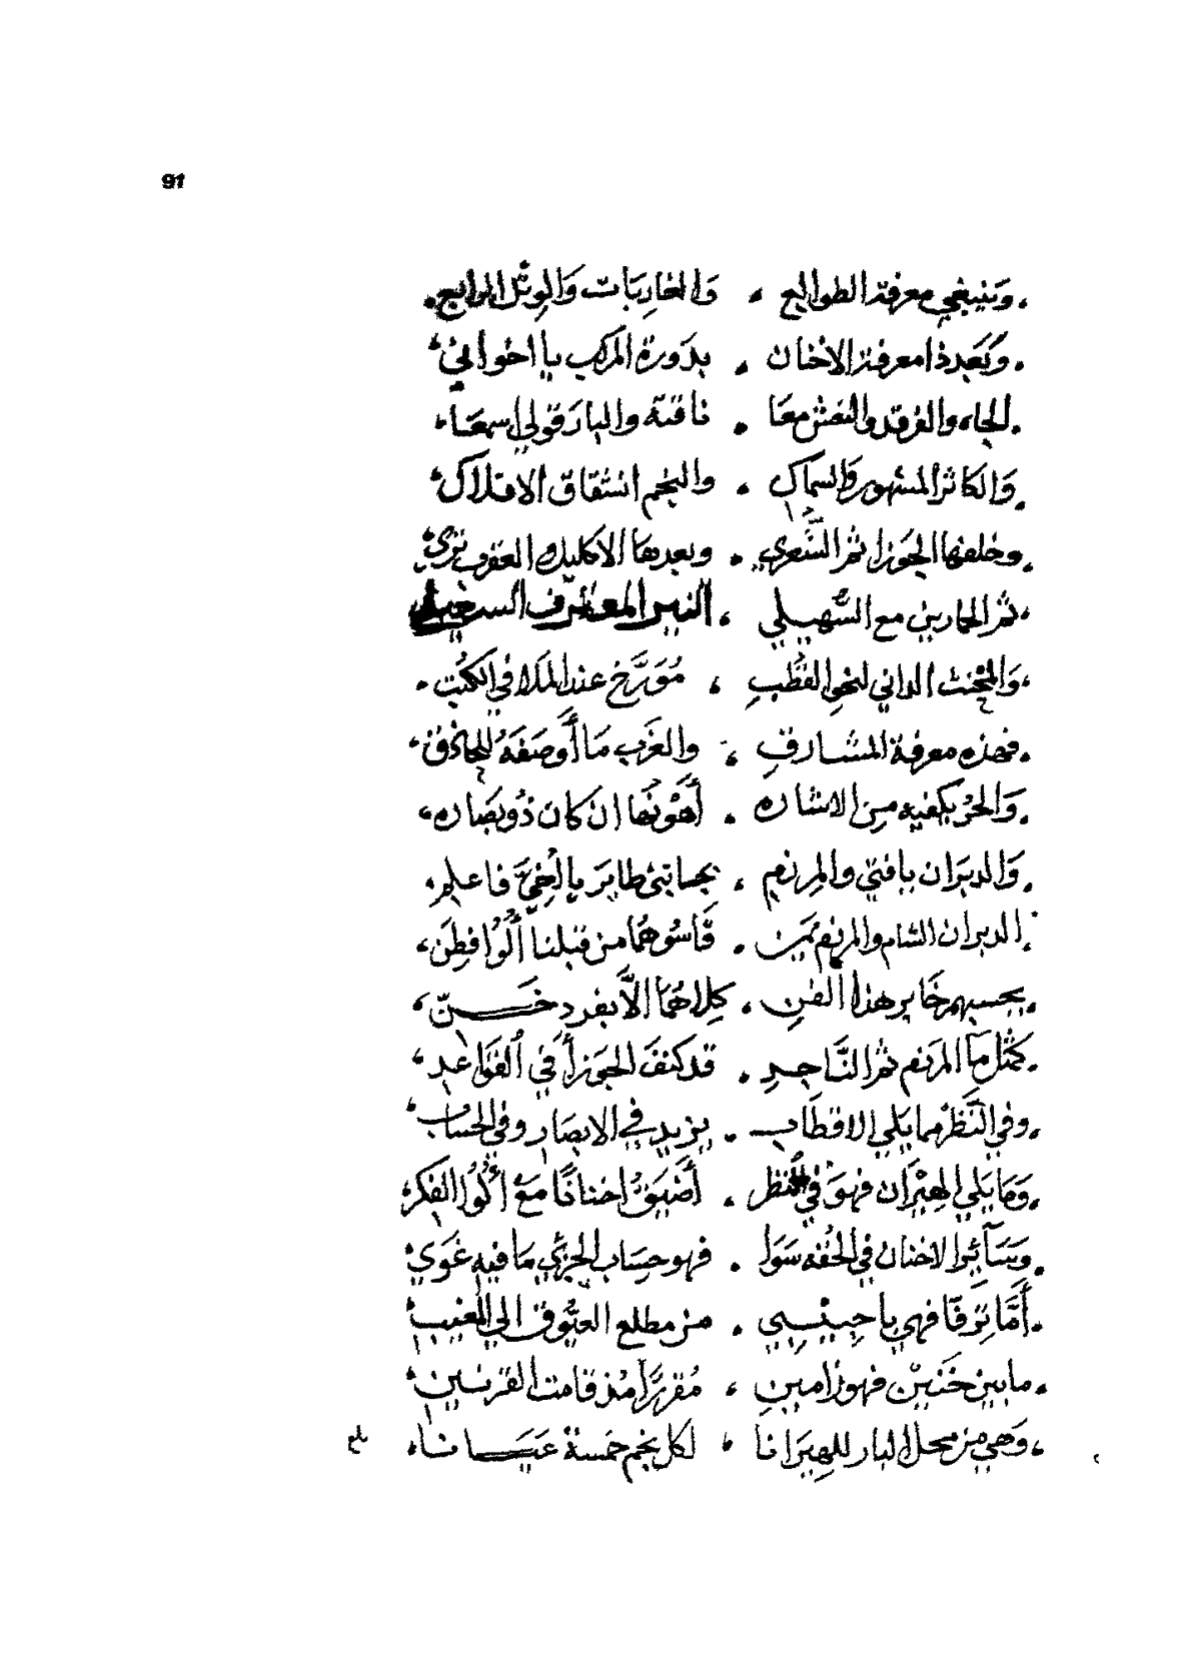 91
وَينبغي معرفة الطوالع ، وَالغاربَات وَالوِتْر الرابع
وَبَعِد ذا معرفة الأخنان ، بِدَورة المركب يا اخوانيْ
الجاه والفرقد والنعش معَا . ناقته والبار قولي اسمعَا
وَالكاثر المشهور وَالسماكِ ، والنجم اشتقاق الافلاكْ
وخلفها الجَوزا ثم الشّعري . وبعدها الاكليل والعقرب تري
ثم الحمارين مع السُّهيلي ،
وَالتحت الداني لنحو القطبِ ، مُوَرَّخ عند الملا في الكتبِ
فهذه معرفة المشارقِ ، والغَرب مَا أوصَفَهُ للحاذق
وَالحرُّ يكفيه مِن الاشاره . أهْونهَا ان كان ذُو بصَاره
وَالدبَران يا فتي والمِرزم ، بجانبي طاير يا أخِيَّ فاعلم
الدبران الشام والمرزم يَمَن . قَاسُوهُما من قبلنا ألُوا فطَن
يحسبهم خَابر هذا الفنِ ، كِلاهُمَا الاَّ بفرد خَنّ
كمثل مَا المرزم ثم النَّاجدِ . قد كنفَ الجَوزأ في القوَاعدِ
وفي النَّظر مما يَلي الاقطَاب . يزيد في الابصَار وفي الحساب
وَمَا يَلي الهِيْرَان فهوَ في النظر . أضيَقُ اخنانًا مَعَ أُلُوا الفِكر
وَسَآئِر الاخنان في الحُقه سَوَا . فهو حسَاب الجزئي مَا فيه غَوَي
أمَّا تِرِفَّا فهي يا حبِيْبِي . من مطلع العيُّوق الي المغيبِ
ما بين خَنَيْن فهو زامينِ ، مُقررًا مُذ قامت القرنَينِ
وَهي من محل البار للهِيرَانا ، لكل نجم خمسة عَيَانا
بلغ